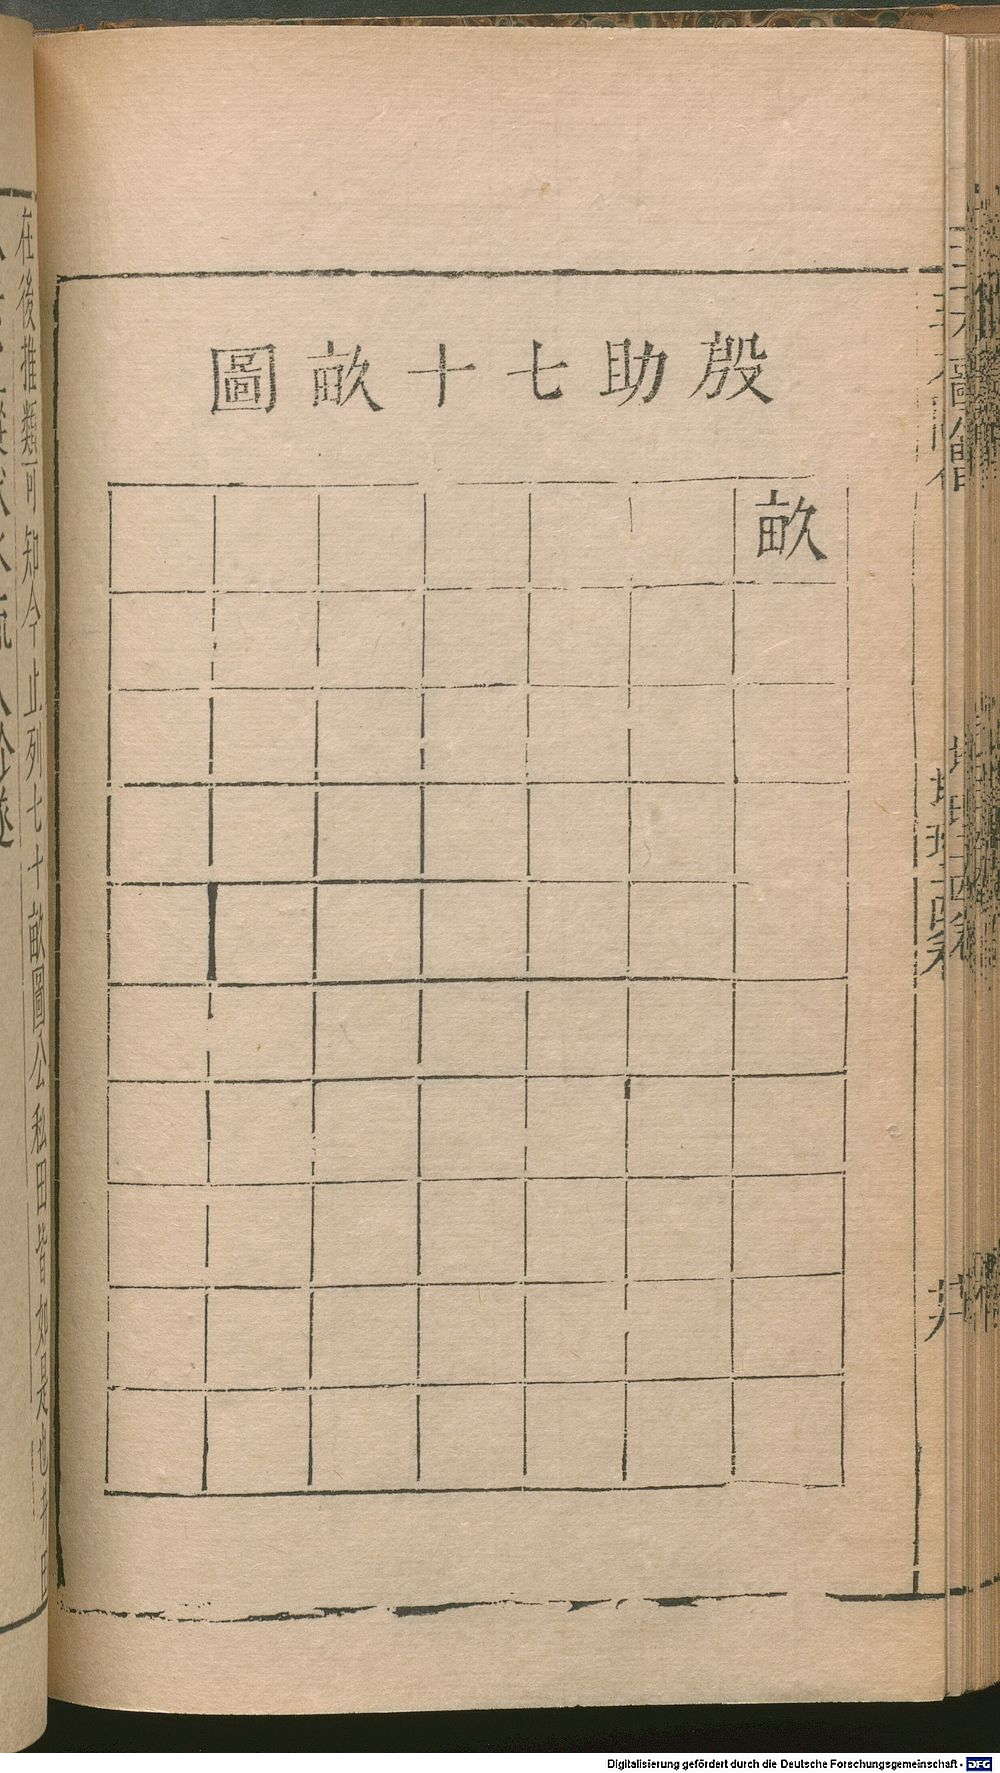 殷助七十畝圖
畝
在後推類可知今止列七十畝圖公私田皆如是也
三才圖會
地理十四卷
Digitalisierung gefördert durch die Deutsche Forschungsgemeinschaft - DFG